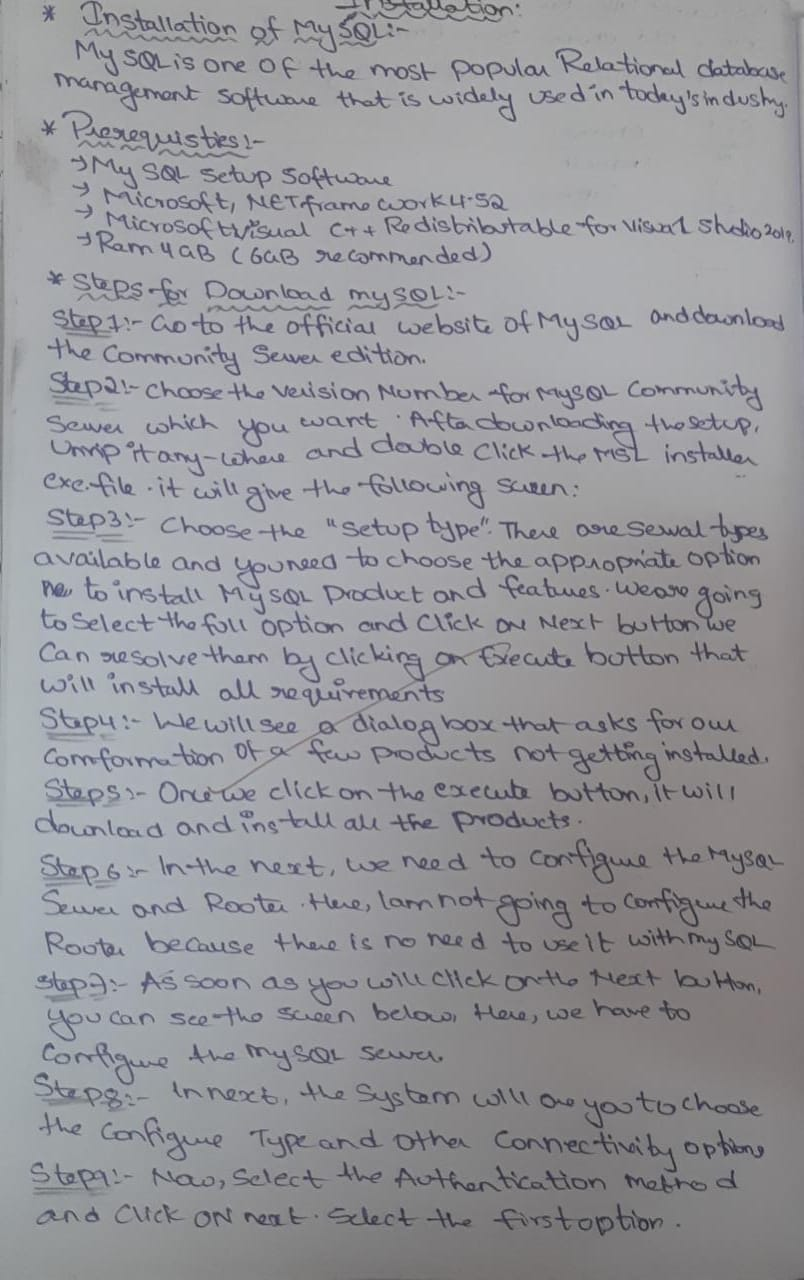 Installation:
* Installation of MySQL:-
MySQL is one of the most popular Relational database
management software that is widely used in today's industry.
* Prerequisties:-
→ My SQL setup software
→ Microsoft, NET framework 4.52
→ Microsoft Visual C++ Redistributable for Visual Studio 2019.
→ Ram 4GB (6GB recommended)
* Steps for Download mySQL:-
Step1:- Go to the official website of MySQL and download
the Community Server edition.
Step2:- Choose the Version Number for MySQL Community
Server which you want. After downloading the setup,
Unzip it any-where and double click the MSL installer
exe.file. it will give the following screen:
Step3:- Choose the "setup type". There are several types
available and you need to choose the appropriate option
to install MySQL Product and features. we are going
to Select the full option and Click on Next button we
Can resolve them by clicking on Execute button that
will install all requirements
Step4:- We will see a dialog box that asks for our
Comformation of a few products not getting installed.
Step5:- Once we click on the execute button, it will
download and install all the products.
Step6:- In the next, we need to configure the MySQL
Server and Router. Here, I am not going to configure the
Router because there is no need to use it with mySQL
Step7:- As soon as you will click on the Next button,
you can see the screen below. Here, we have to
Configure the mySQL server.
Step8:- In next, the System will you to choose
the Configure Type and other Connectivity options
Step9:- Now, Select the Authentication method
and Click ON next. Select the first option.